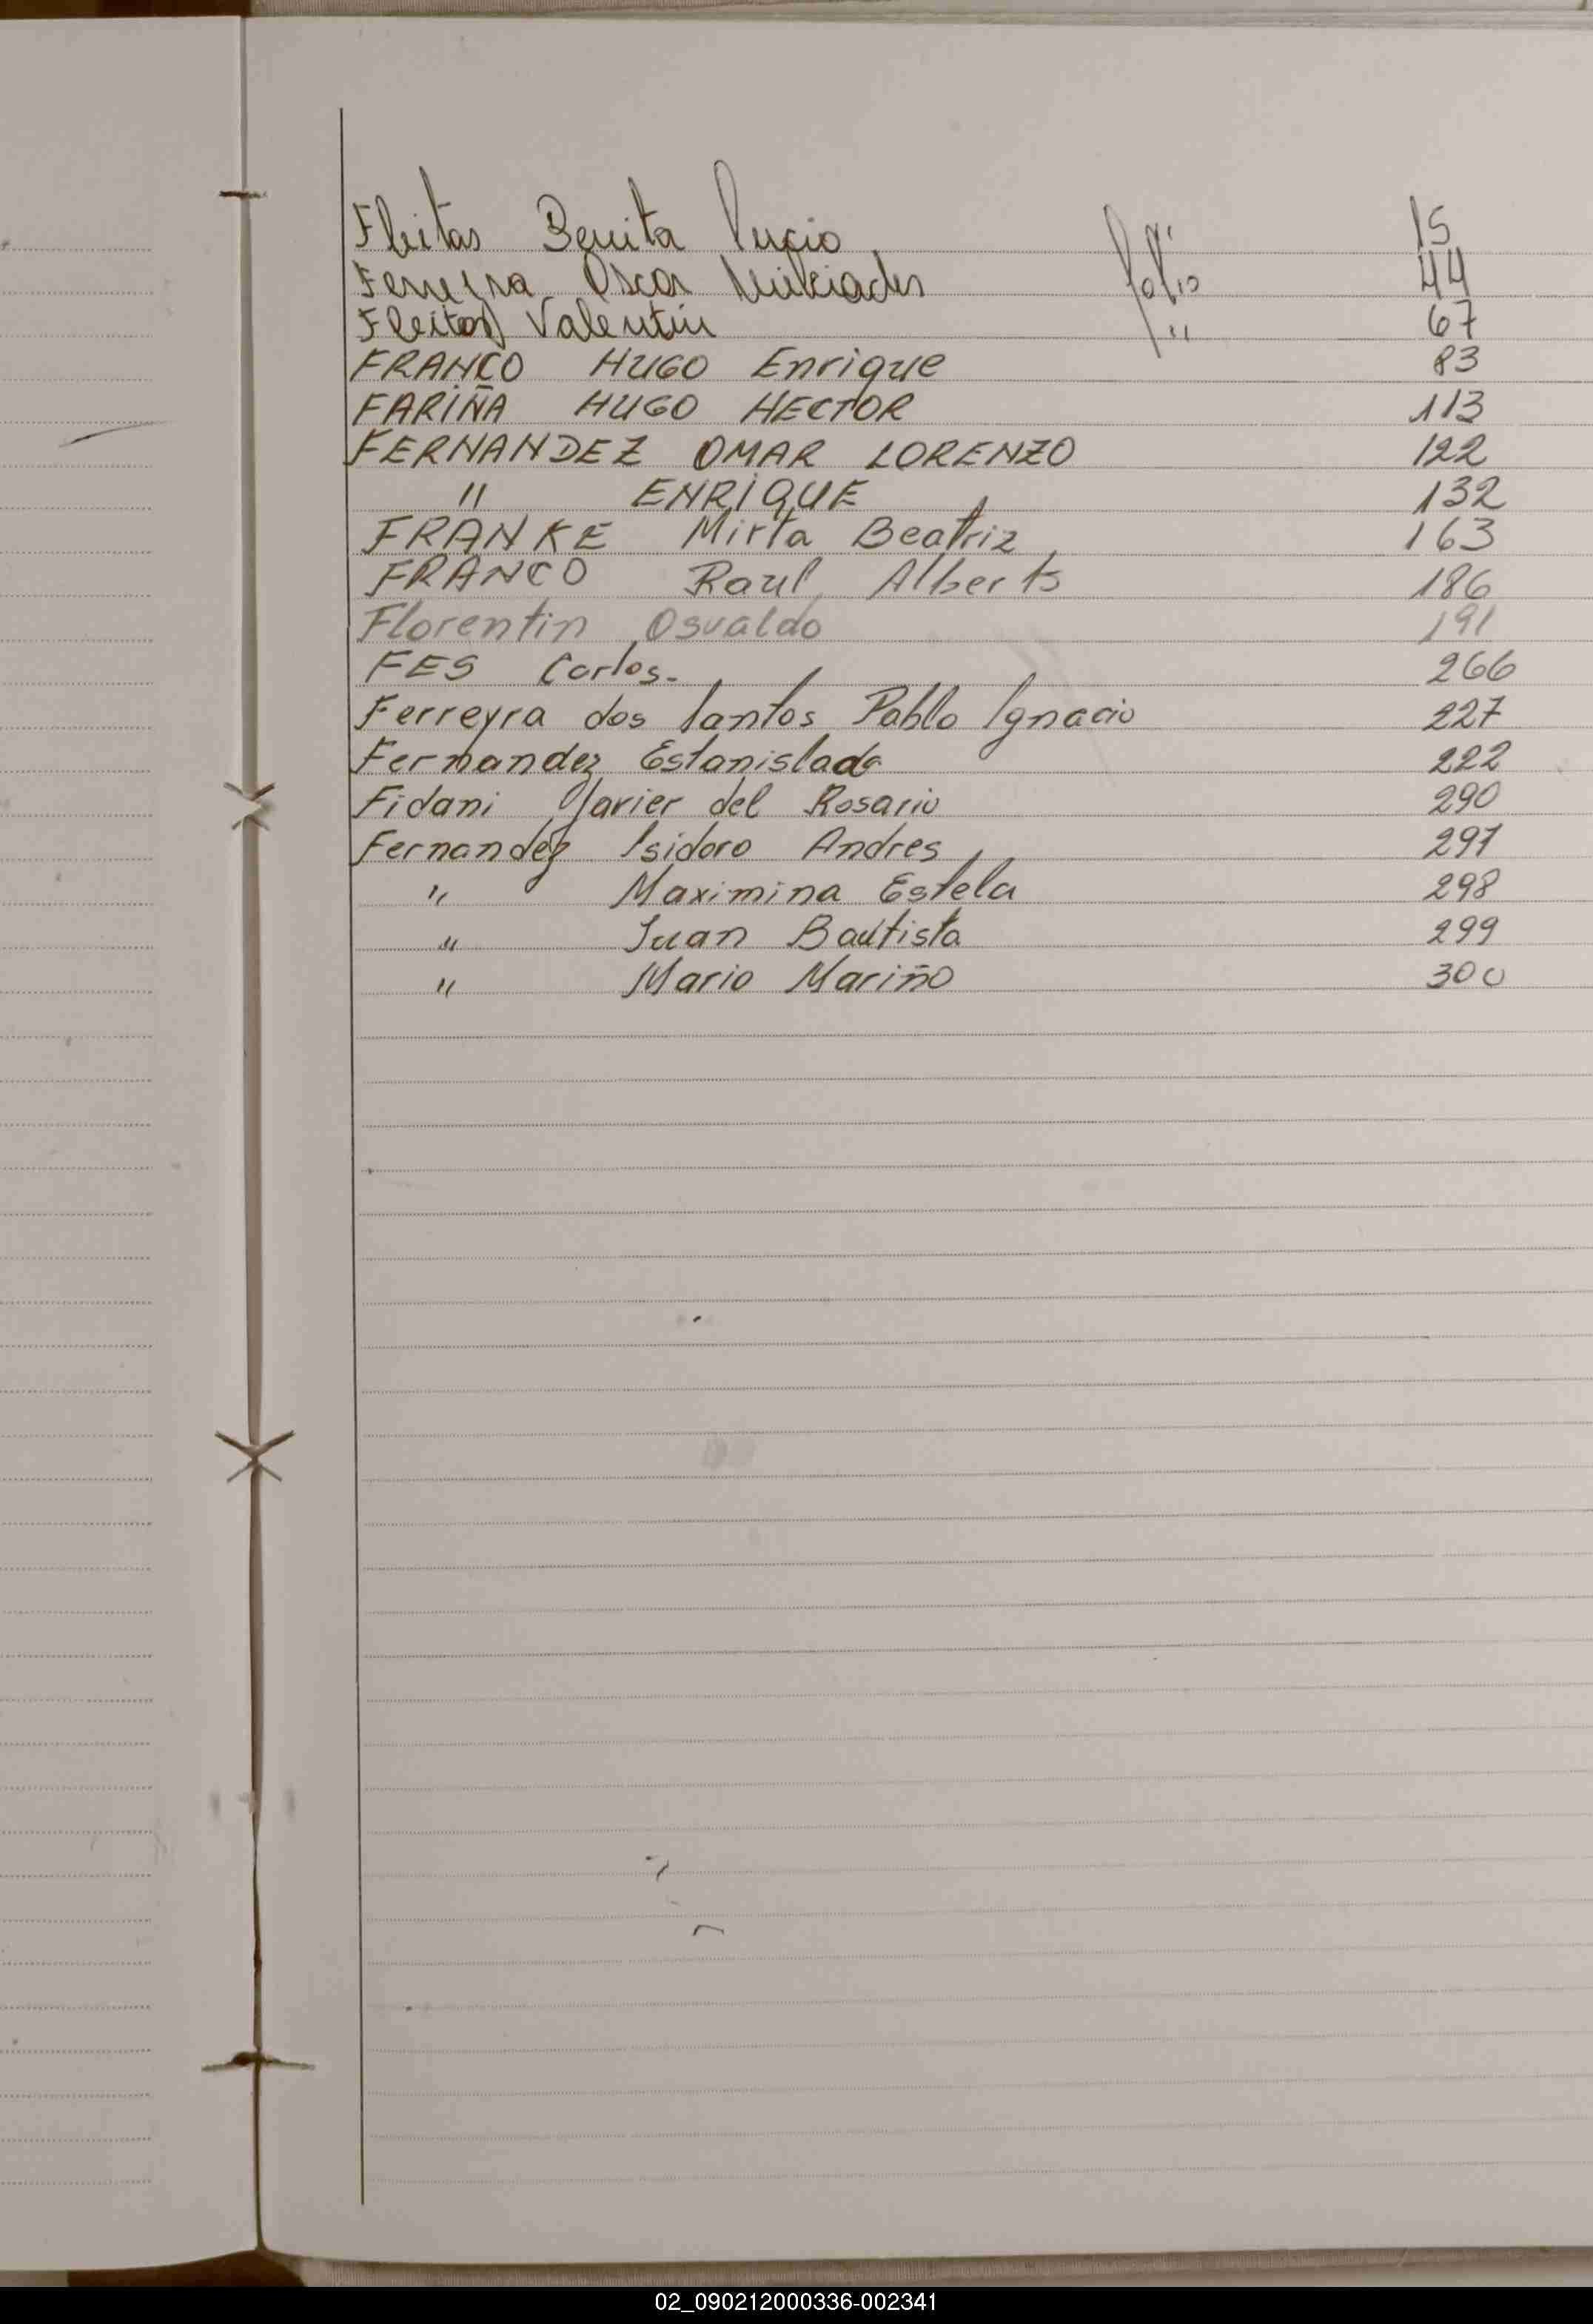 Fleitas Benita Lucia foli 15
Ferreyra Oscar Milciades folio 44
Fleitas Valentin " 67
FRANCO HUGO Enrique 83
FARIÑA HUGO HECTOR 113
FERNANDEZ OMAR LORENZO 122
" ENRIQUE 132
FRANKE Mirta Beatriz 163
FRANCO Raul Alberto 186
Florentin Osvaldo 191
FES Carlos- 266
Ferreyra dos Santos Pablo Ignacio 227
Fernandez Estanislada 222
Fidani Javier del Rosario 290
Fernandez Isidoro Andres 297
" Maximina Estela 298
" Juan Bautista 299
" Mario Mariño 300
02_090212000336-002341